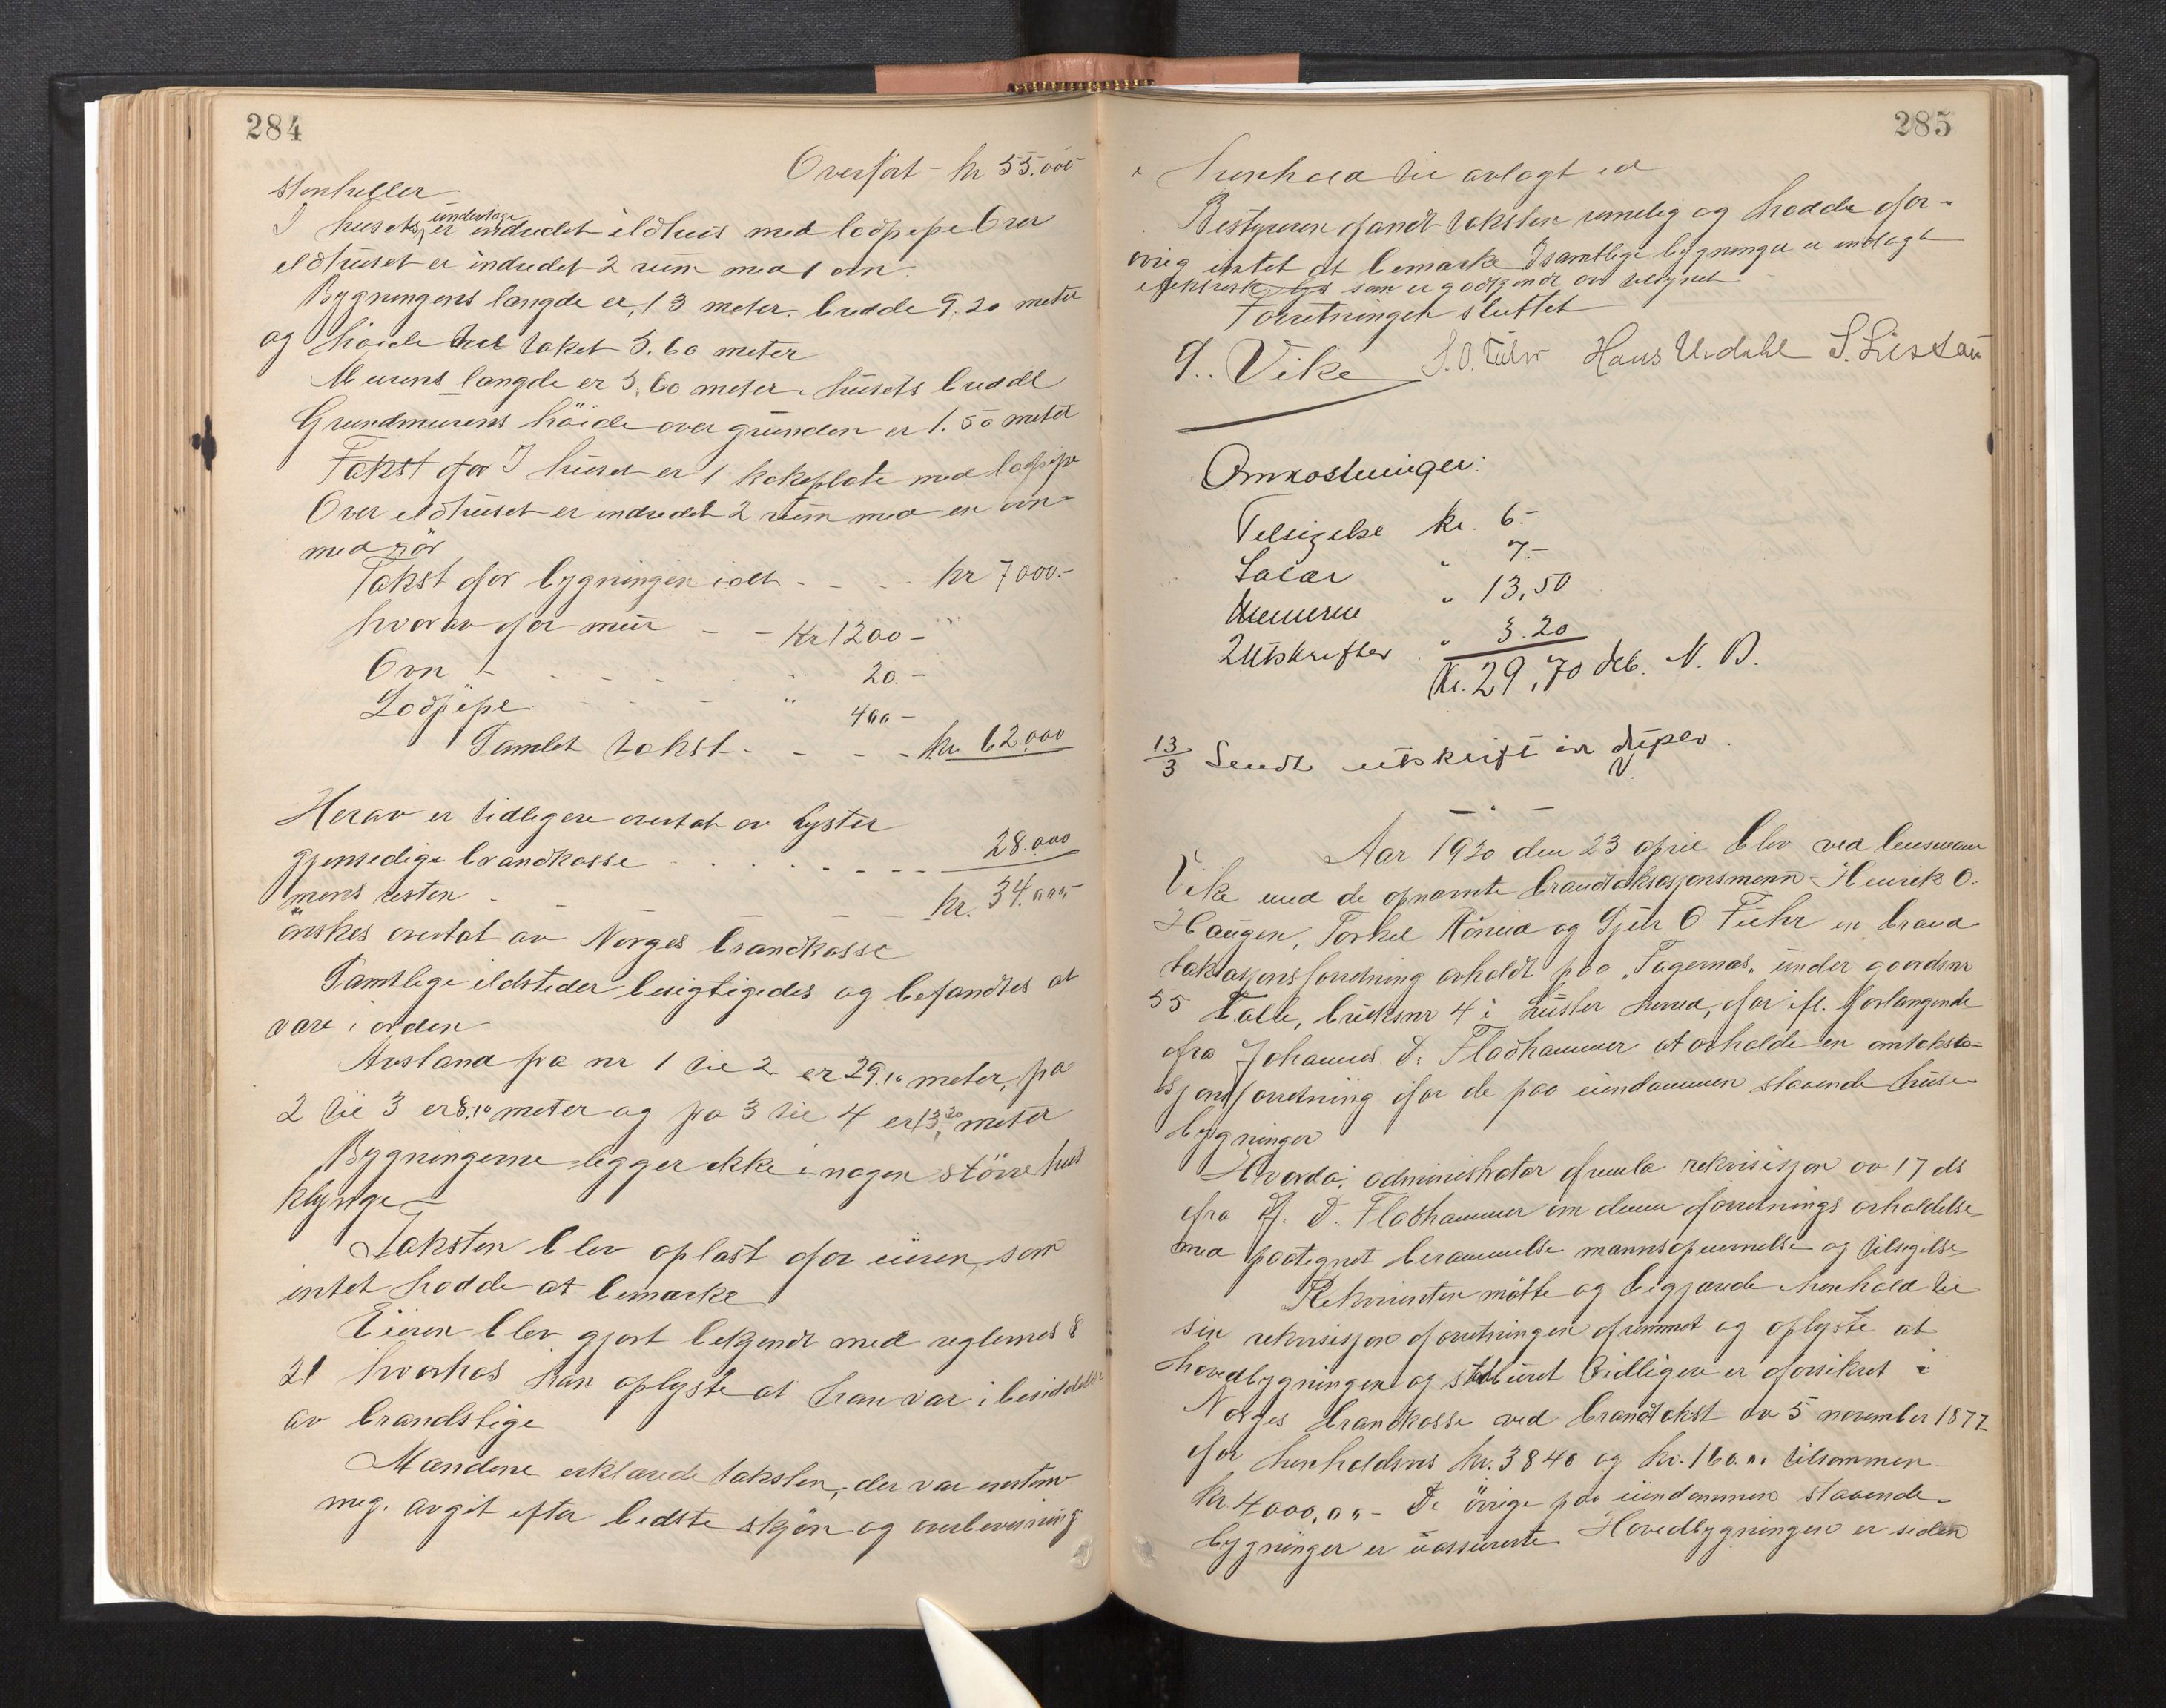 284
Overført - kr 55.000
stenheller
I husets underetage er indredet ildhus med lodpipe Over
eldhuset er indredet 2 rum med 1 ovn.
Bygningens længde er 13 meter, bredde 9.20 meter
og høide til taket 5.60 meter
Murens længde er 5.60 meter, husets bredde
Grundmurens høide over grunden er 1.50 meter
Takst for I huset er 1 kokeplate med lodpipe
Over eldhuset er indredet 2 rum med en ovn
med rör
Takst for bygningen ialt - - - kr 7000.-
hvorav for mur - - Kr 1200 -
Ovn - - - - - 20.-
Lodpipe - - - " 400 -
Samlet takst - - - - kr. 62.000
Herav er tidligere overtat av Lyster
gjensedige brandkasse - - - - 28.000
mens resten - - - - kr. 34.000
ønskes overtat av Norges brandkasse
Samtlige ildsteder besigtigedes og befandtes at
være i orden
Avstand fra nr 1 til 2 er 29.10 meter, fra
2 til 3 er 8.10 meter og fra 3 til 4 er 13,20 meter
Bygningerne ligger ikke i nogen större hus
klynge
Taksten blev oplæst for eieren, som
intet hadde at bemærke
Eieren blev gjort bekjendt med reglernes §
21 hvorhos han oplyste at han var i besiddelse
av brandstige
Mændene erklærede taksten, der var enstem-
mig, avgit efter bedste skjøn og overbevisning
285
i henhold til avlagt ed
Bestyreren fandt taksten rimelig og hadde for-
øvrig intet at bemærke I samtlige bygninger er indlagt
elektrisk lys som er godkjendt av tilsynet
Forretningen sluttet
J. Vike S. O. Fuhr Hans Urdahl S. Lirstau
Omkostninger:
Tilsigelse kr. 6.-
Salær " 7.-
Mennerne " 13,50
2 Utskrifter " 3.20
Kr. 29,70 deb. N. B.
13/3 Sendt utskrift in duplo.
Aar 1920 den 23 april blev ved lensmann
Vike med de opnævnte brandtaksasjonsmenn Henrik O.
Haugen, Torkel Mörrid og Gjert O Fuhr en brand
taksasjonsforretning avholdt paa "Fagernæs" under gaardsnr
55 Talle, bruksnr 4 i Luster herred, for ifl. forlangende
fra Johannes D. Fladhammer at avholde en omtaksa-
sjonsforretning for de paa eiendommen staaende huse-
bygninger
Hvorda: administrator fremla rekvisisjon av 17 ds
fra J. D. Fladhammer om denne forretnings avholdelse
med paategnet berammelse mannsopnevnelse og tilsigelse
Rekvirenten mötte og begjærede i henhold til
sin rekvisisjon forretningen fremmet og oplyste at
hovedbygningen og stabburet tidligere er forsikret i
Norges brandkasse ved brandtakst av 5 november 1877
for henholdsvis kr. 3840 og kr. 160.00 tilsammen
kr. 4000,00 - De övrige paa eiendommen staaende
bygninger er uassurerte. Hovedbygningen er siden